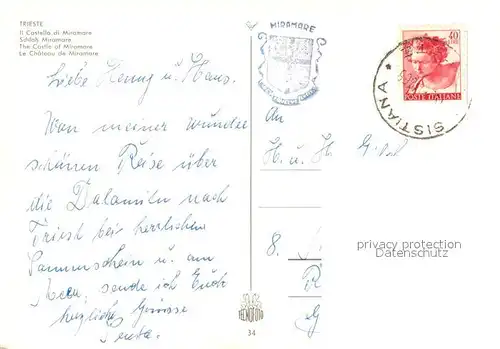 TRIESTE
Il Castello di Miramare
Schloß Miramare
The Castle of Miramare
Le Château de Miramare
MIRAMARE
40
POSTE ITALIANE
SISTIANA
Liebe Henny u. Hans.
Von meiner wunder
schönen Reise über
die Dalamiten nach
Triest bei herrlichem
Sonnenschein u. am
Meer, sende ich Euch
herzliche Grüsse
An
H. u. H.
8.
privacy protection
Datenschutz
34